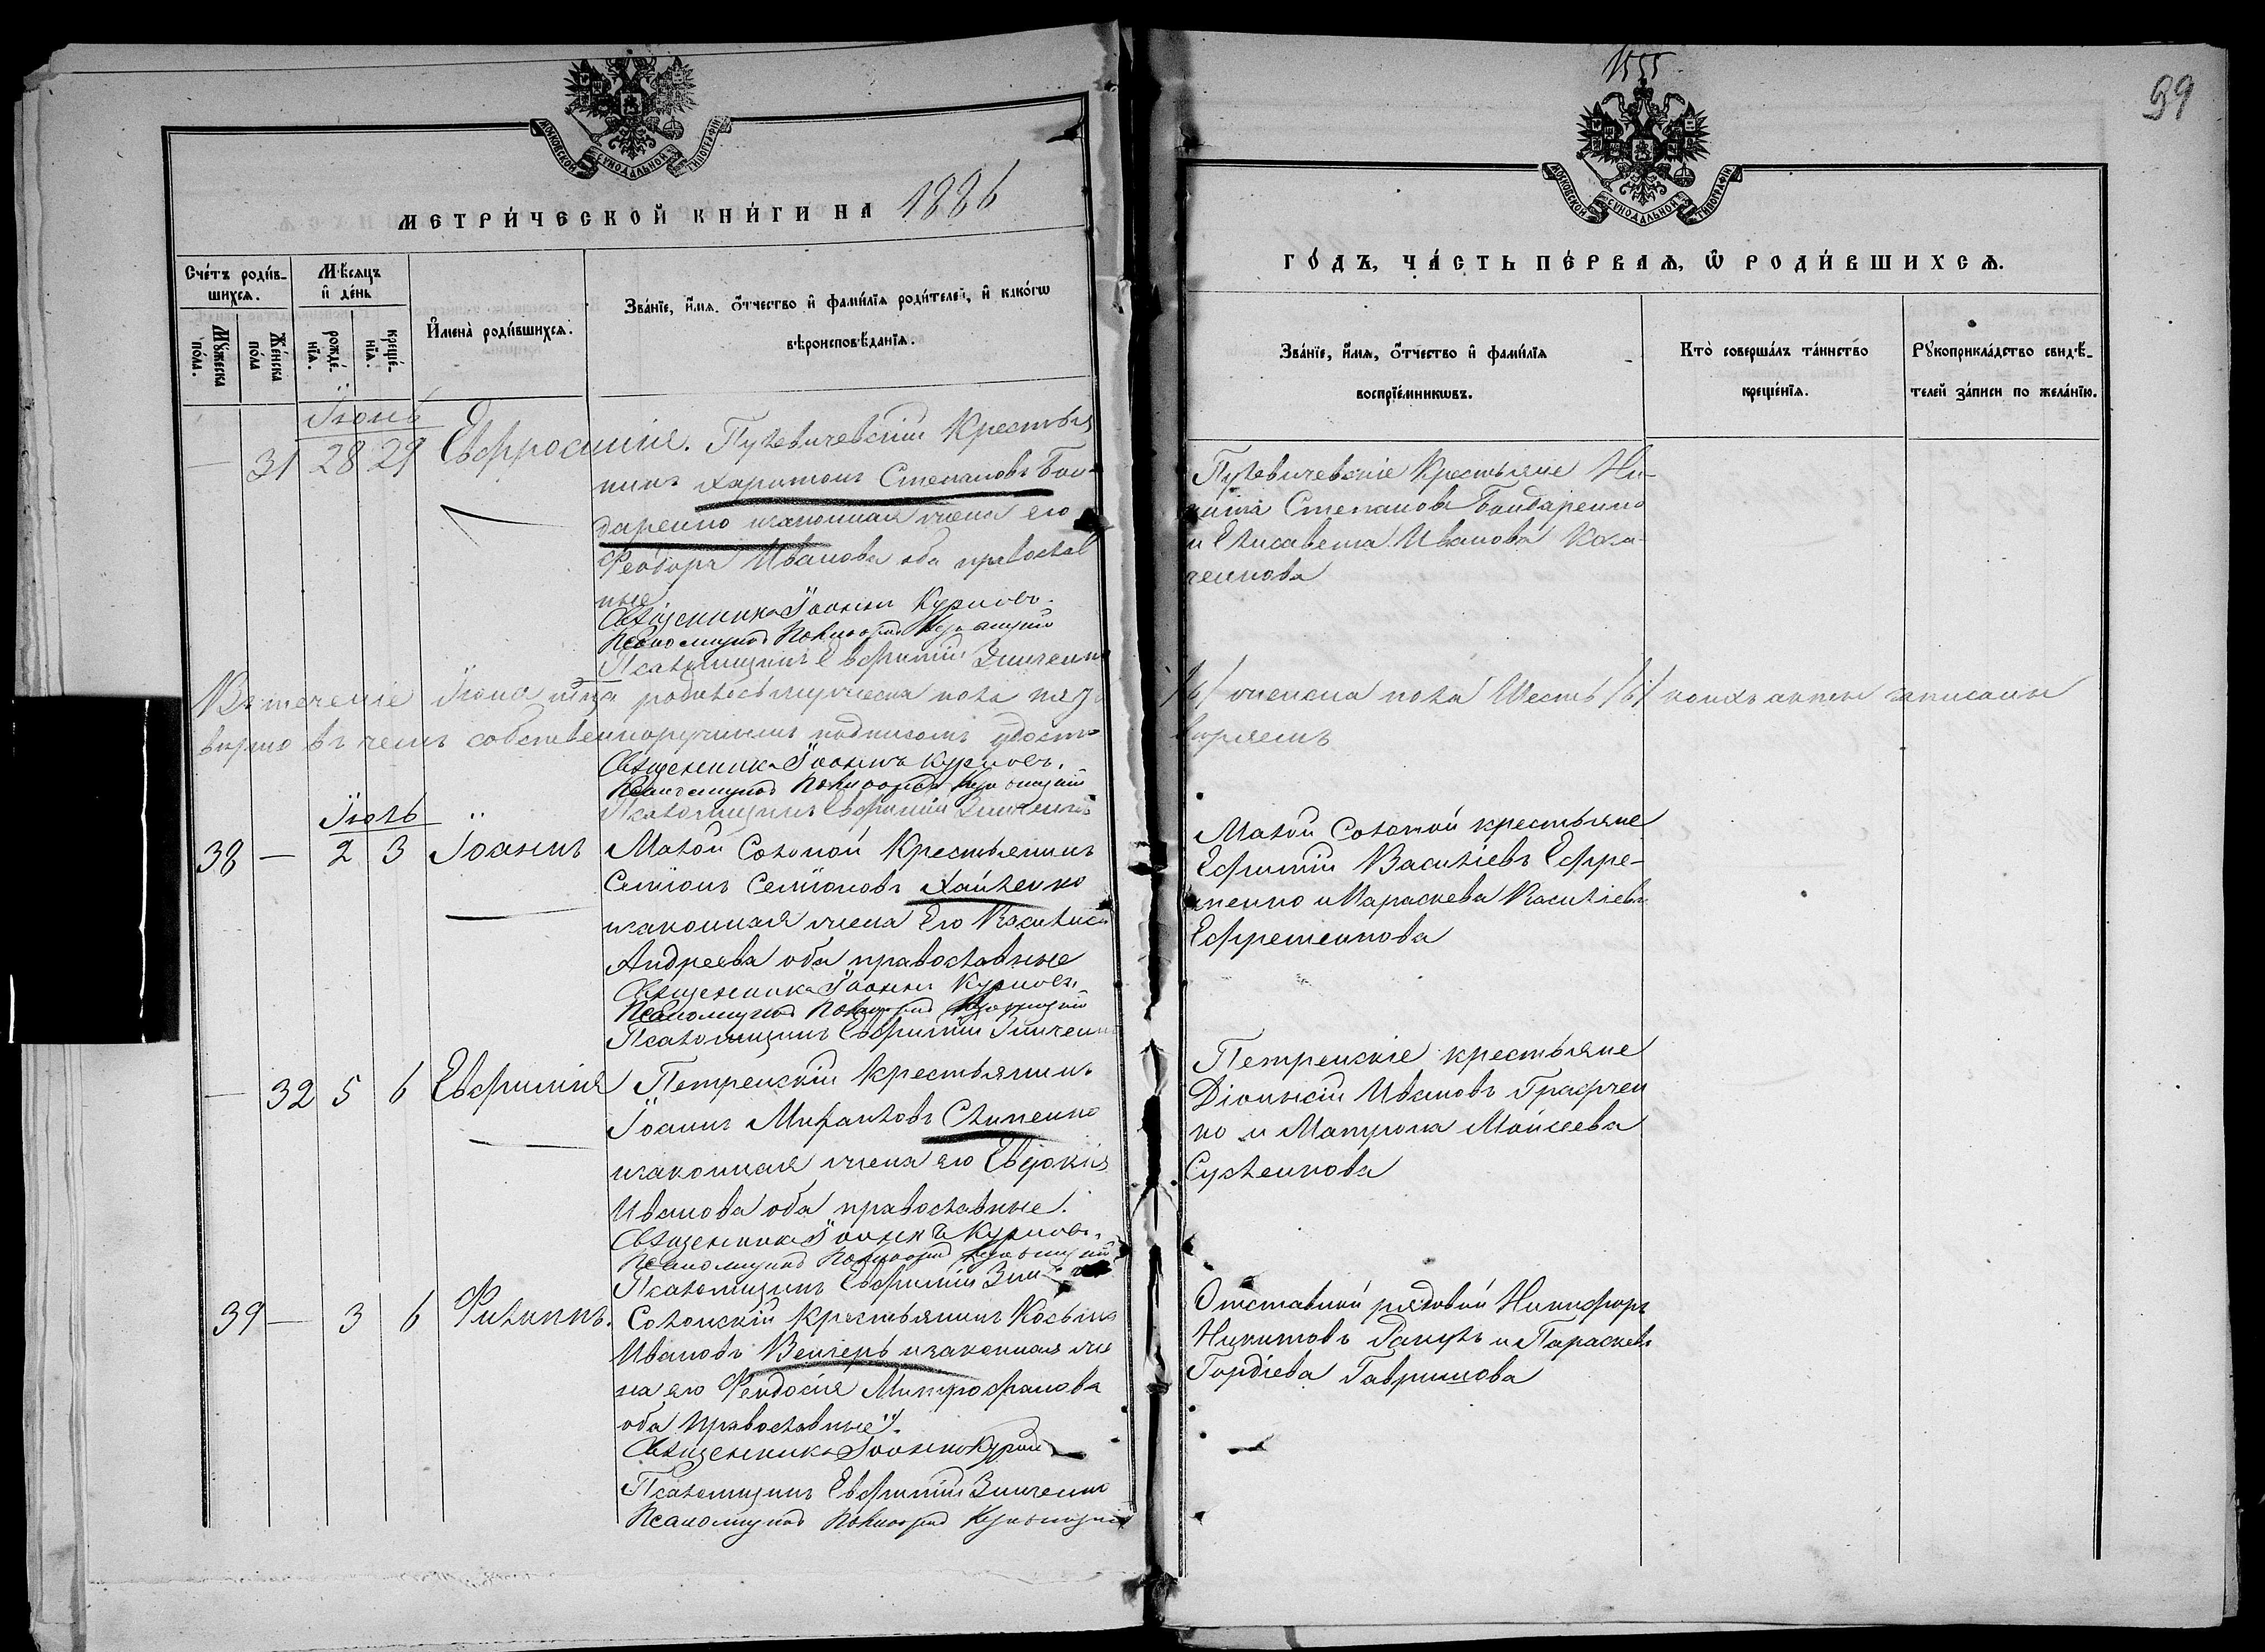 МОСКОВСКОЙ СѴНОДАЛЬНОЙ ТИПОГРАФІИ
МЕТРИ́ЧЕСКОЙ КНИ́ГИ НА 1886
Сче́тъ роди́в-
шихсѧ.
Мѣ́сѧцъ
и҆ де́нь
Мꙋ́жеска
по́ла.
Же́нска
по́ла
рожде́-
нїѧ.
креще́-
нїѧ.
И҆мена̀ роди́вшихсѧ.
Зва́нїе, и҆́мѧ, ѻ҆́тчество и҆ фами́лїѧ роди́телей, и҆ како́гѡ
вѣроисповѣ́данїѧ.
Іюнь
— 31 28 29 Евфросинія. Пулевичевскій Крестья
нинъ Харитонъ Степановъ Бон-
даренко изаконная жена его
Феодора Иванова оба православ
ные
Священникъ Іоаннъ Курновъ.
Псаломщикъ
Псаломщикъ Евфимій Зинченко
Втеченіе Іюня мца родилось мужеска пола
вѣрно въ чемъ собственноручнымъ подписомъ удосто
Священникъ Іоаннъ Курновъ.
Псаломщикъ
Псаломщикъ Евфимій Зинченко
Іюль
38 — 2 3 Іоаннъ Малой Соломой Крестьянинъ
Симіонъ Симіоновъ Хайленко
изаконная жена Его Василиса
Андреева оба православные
Священникъ Іоаннъ Курновъ.
Псаломщикъ
Псаломщикъ Евфимій Зинченко
— 32 5 6 Евфимія Петренскій Крестьянинъ
Іоаннъ Михайловъ Слипенко
изаконная жена его Евдокія
Иванова оба православные.
Священникъ Іоаннъ Курновъ.
Псаломщикъ
Псаломщикъ Евфимій
39 — 3 6 Филиппъ. Соломскій Крестьянинъ Косьма
Ивановъ Венгеръ изаконная же
на его Феодосія Митрофанова
оба православные.
Священникъ Іоаннъ
Псаломщикъ Евфимій Зинченко
Псаломщикъ
1555
99
МОСКОВСКОЙ СѴНОДАЛЬНОЙ ТИПОГРАФІИ
ГО́ДЪ, ЧА́СТЬ ПЕ́РВАѦ, Ѡ҆ РОДИ́ВШИХСѦ.
Зва́нїе, и҆́мѧ, ѻ҆́тчество и҆ фами́лїѧ
воспрїе́мникѡвъ.
Кто̀ соверша́лъ та́инство
креще́нїѧ.
Рꙋкоприкла́дство свидѣ́-
телей за́писи по жела́нїю.
Пулевичевскіе Крестьяне Ни-
кита Степановъ Бондаренко
и Елисавета Иванова Коза-
ченкова
женска пола Шесть /6/ коихъ акты записаны
вѣряемъ
Малой Соломой крестьяне
Ефимій Василіевъ Ефре-
менко и Параскева Василіева
Ефременкова
Петренскіе крестьяне
Діонисій Ивановъ Графчен
ко и Матрона Моисеева
Сулѣенкова
Отставной рядовой Никифоръ
Никитовъ и Параскева
Гордіева Гавришова